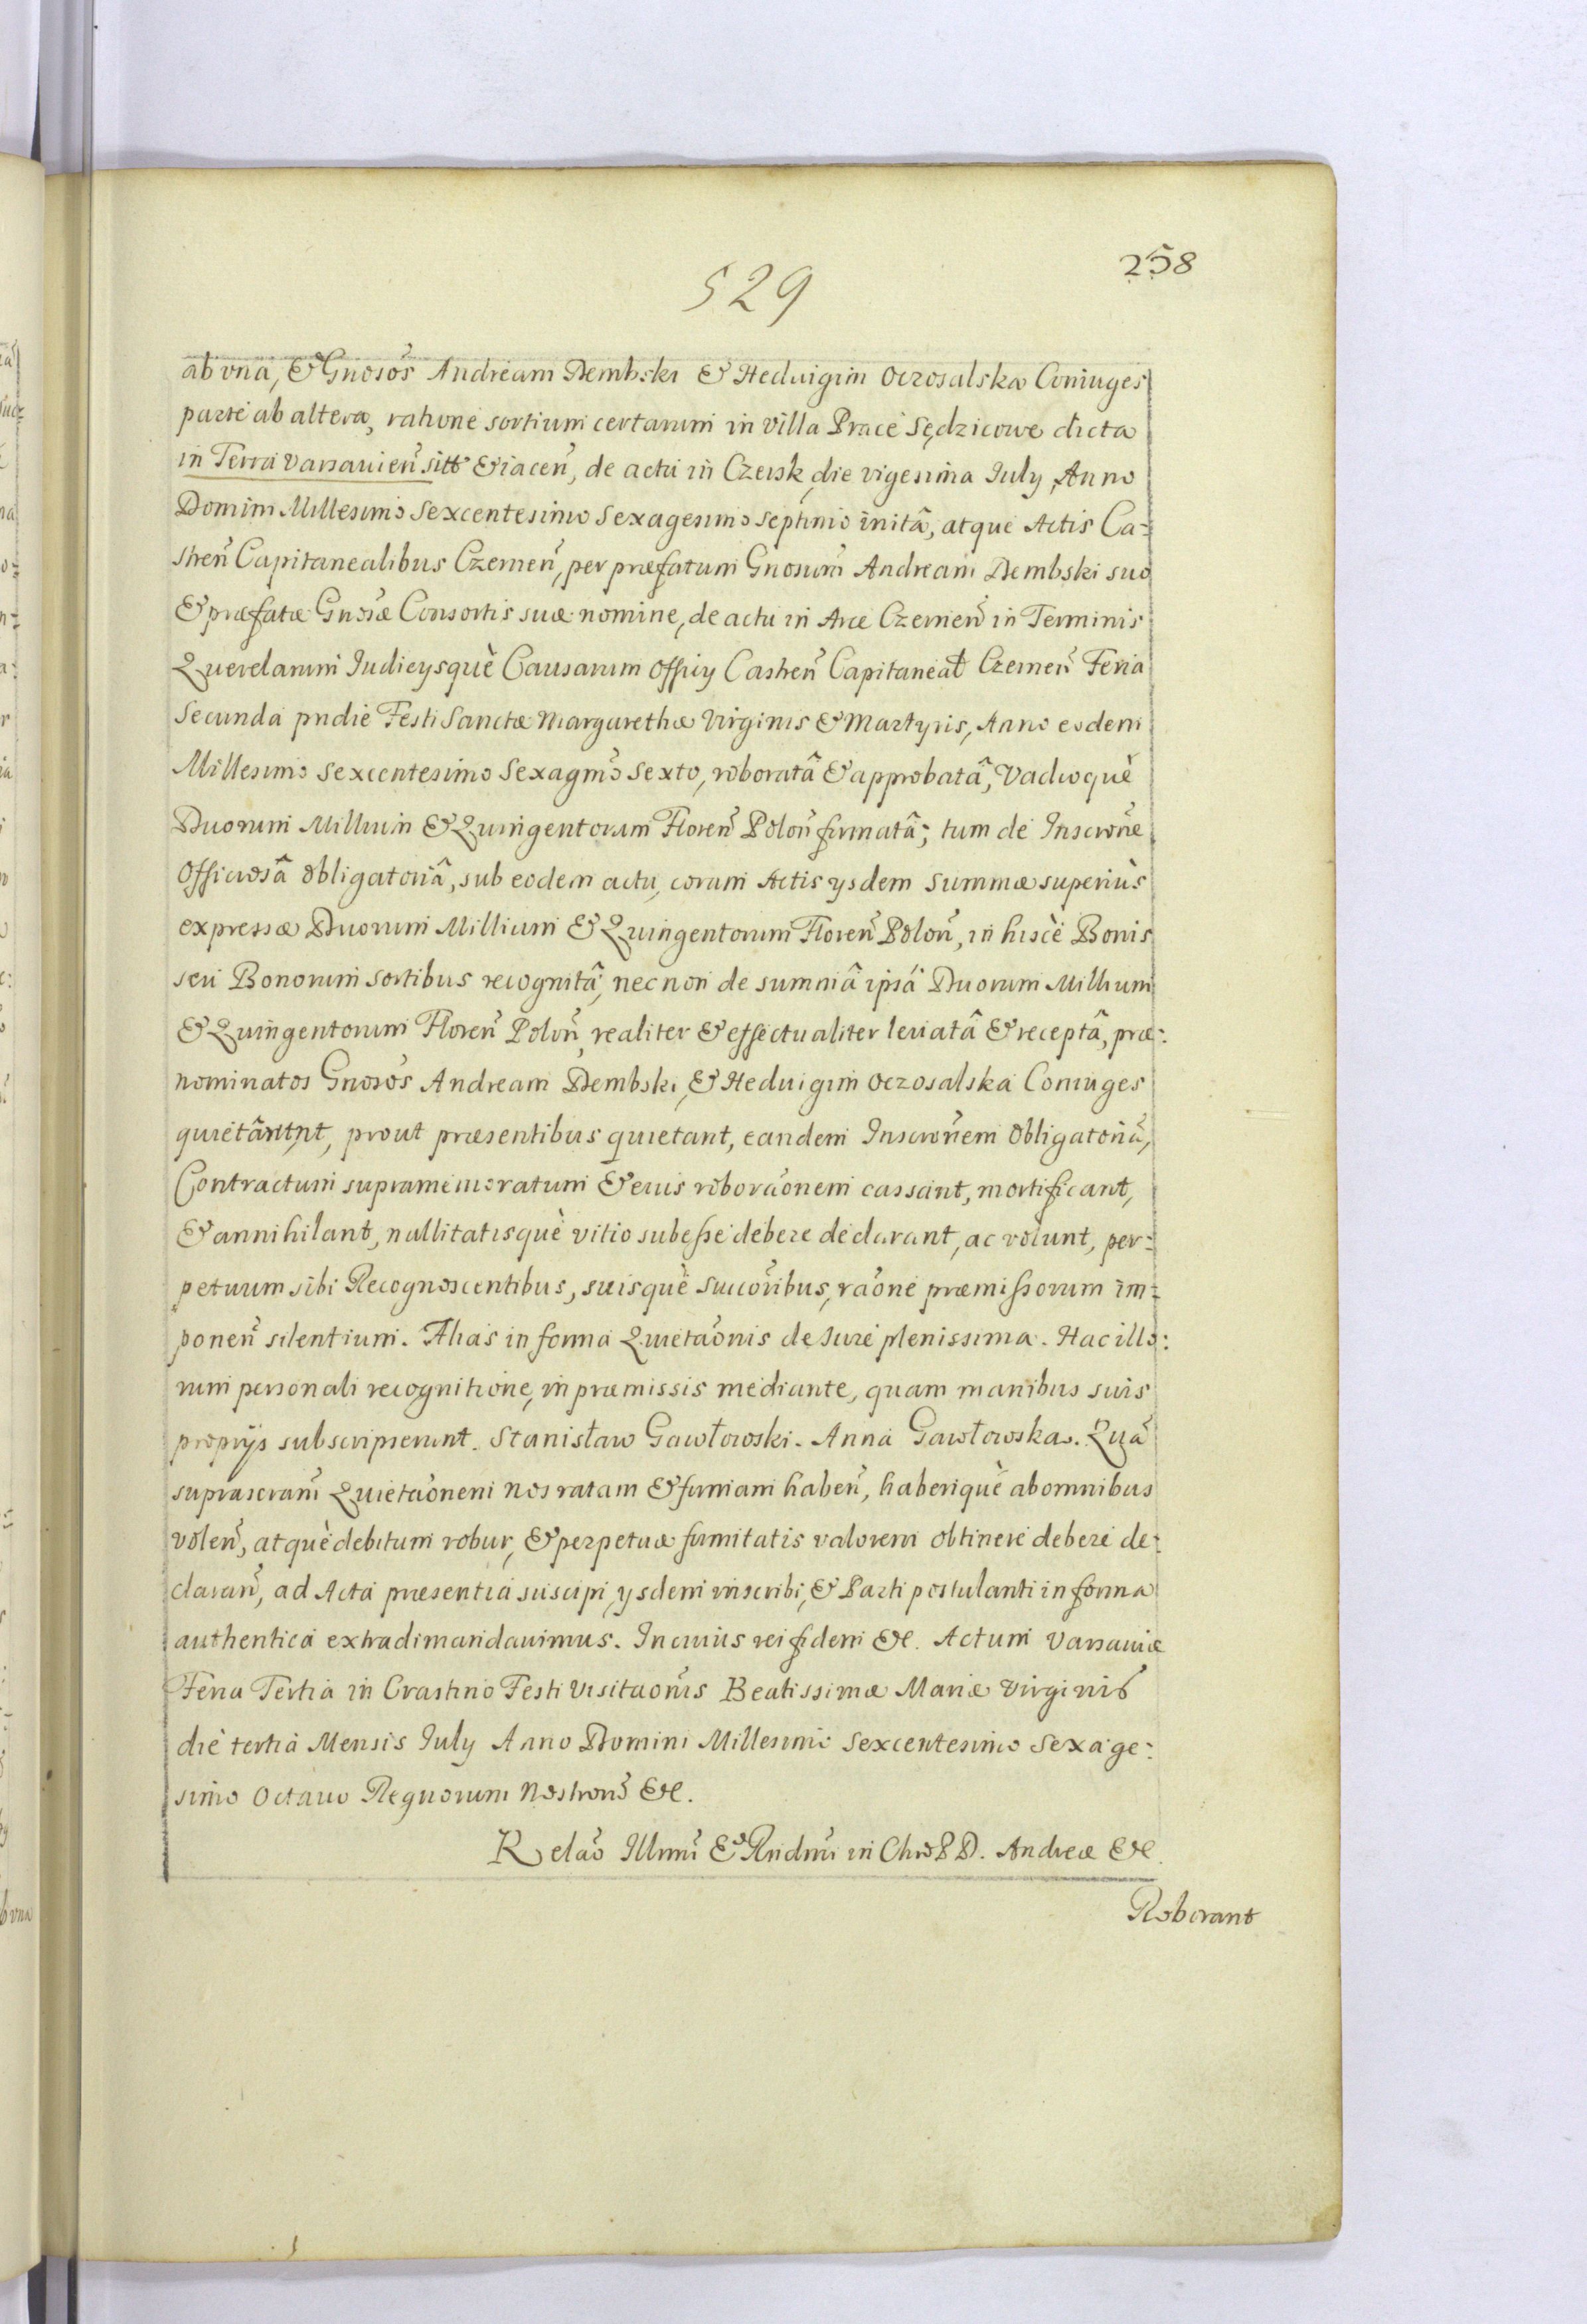 529
258
ab vna, & Gnosos Andream Dembski & Heduigim Oczosalska Coniuges
parte ab altera, ratione sortium certarum in Villa Prace Sędzicowe dicta
in Terra Varsauien sitt & iacen, de actu in Czersk die vigesima July, Anno
Domini Millesimo Sexcentesimo Sexagesimo Septimo initâ, atque Actis Ca=
stren Capitanealibus Czernen, per præfatum Gnosum Andream Dembski suo
& præfatæ Gnosæ Consortis suæ nomine, de actu in Arce Czernen in Terminis
Querelarum Iudicysquè Causarum Officy Castren Capitaneał Czernen Feria
Secunda pridie Festi Sanctæ Margarethæ Virginis & Martyris, Anno eodem
Millesimo Sexcentesimo Sexagmo Sexto, roboratâ & approbatâ, Vadioquè
Duorum Millium & Quingentorum Floren Polon firmatâ; tum de Inscrone
Officiosâ Obligatoriâ, sub eodem actu, coram Actis ysdem Summæ superiùs
expressæ Duorum Millium & Quingentorum Floren Polon, in huscè Bonis
seu Bonorum sortibus recognitâ, nec non de summâ ipsâ Duorum Millium
& Quingentorum Floren Polon, realiter & effectualiter leuatâ & receptâ, præ:
nominatos Gnosos Andream Dembski, & Heduigim Oczosalska Coniuges
quietârunt, prout præsentibus quietant, eandem Inscronem Obligatoriã,
Contractum supramemoratum & eius roboraonem cassant, mortificant,
& annihilant, nullitatisquè vitio subesse debere declarant, ac volunt, per=
petuum sibi Recognoscentibus, suisquè succoribus, raone præmissorum im=
ponen silentium. Alias in forma Quietaonis de Iure plenissima. Hac illo:
rum personali recognitione, in præmissis mediante, quam manibus suis
proprijs subscripserunt. Stanisław Gawłowski. Anna Gawłowska. Quã
suprascram Quietaonem Nos ratam & firmam haben, haberiquè ab omnibus
volen, atquè debitum robur, & perpetuæ firmitatis valorem obtinere debere de:
claran, ad Acta præsentia suscipi, ysdem inscribi, & Parti postulanti in forma
authentica extradi mandauimus. In cuius rei fidem &c. Actum Varsauiæ
Feria Tertia in Crastino Festi Visitaonis Beatissimæ Mariæ Virginis
die tertia Mensis July Anno Domini Millesimo Sexcentesimo Sexage:
simo Octauo Regnorum Nostrorũ &c.
Relão Illmi & Rndmi in Chro P D. Andreæ &c.
Roborant